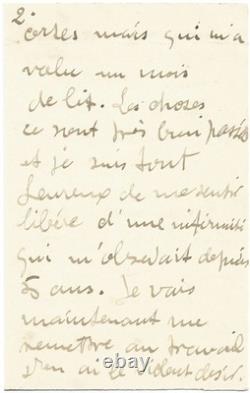 2.
certes mais qui m'a
valu un mois
de lit. Les choses
se sont très bien passées
et je suis tout
heureux de me sentir
libéré d'une infirmité
qui m'obsédait depuis
ans. Je vais
maintenant me
remettre au travail
j'en ai le violent désir.
ebay